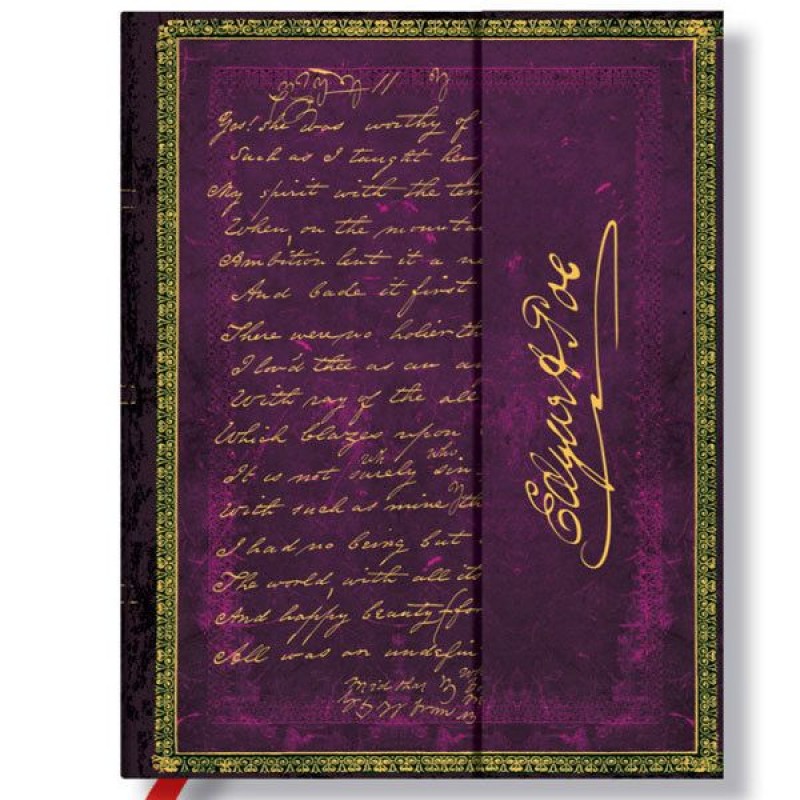 Yes! she was worthy of
Such as I taught her
My spirit with the tem
When, on the mountai
Ambition lent it a ne
And bade it first
There were no holier th
I lov'd thee as an an
With ray of the all
Which blazes upon
It is not surely sin
With such as mine
I had no being but
The world, with all its
And happy beauty (for
All was an undefin
Edgar A Poe